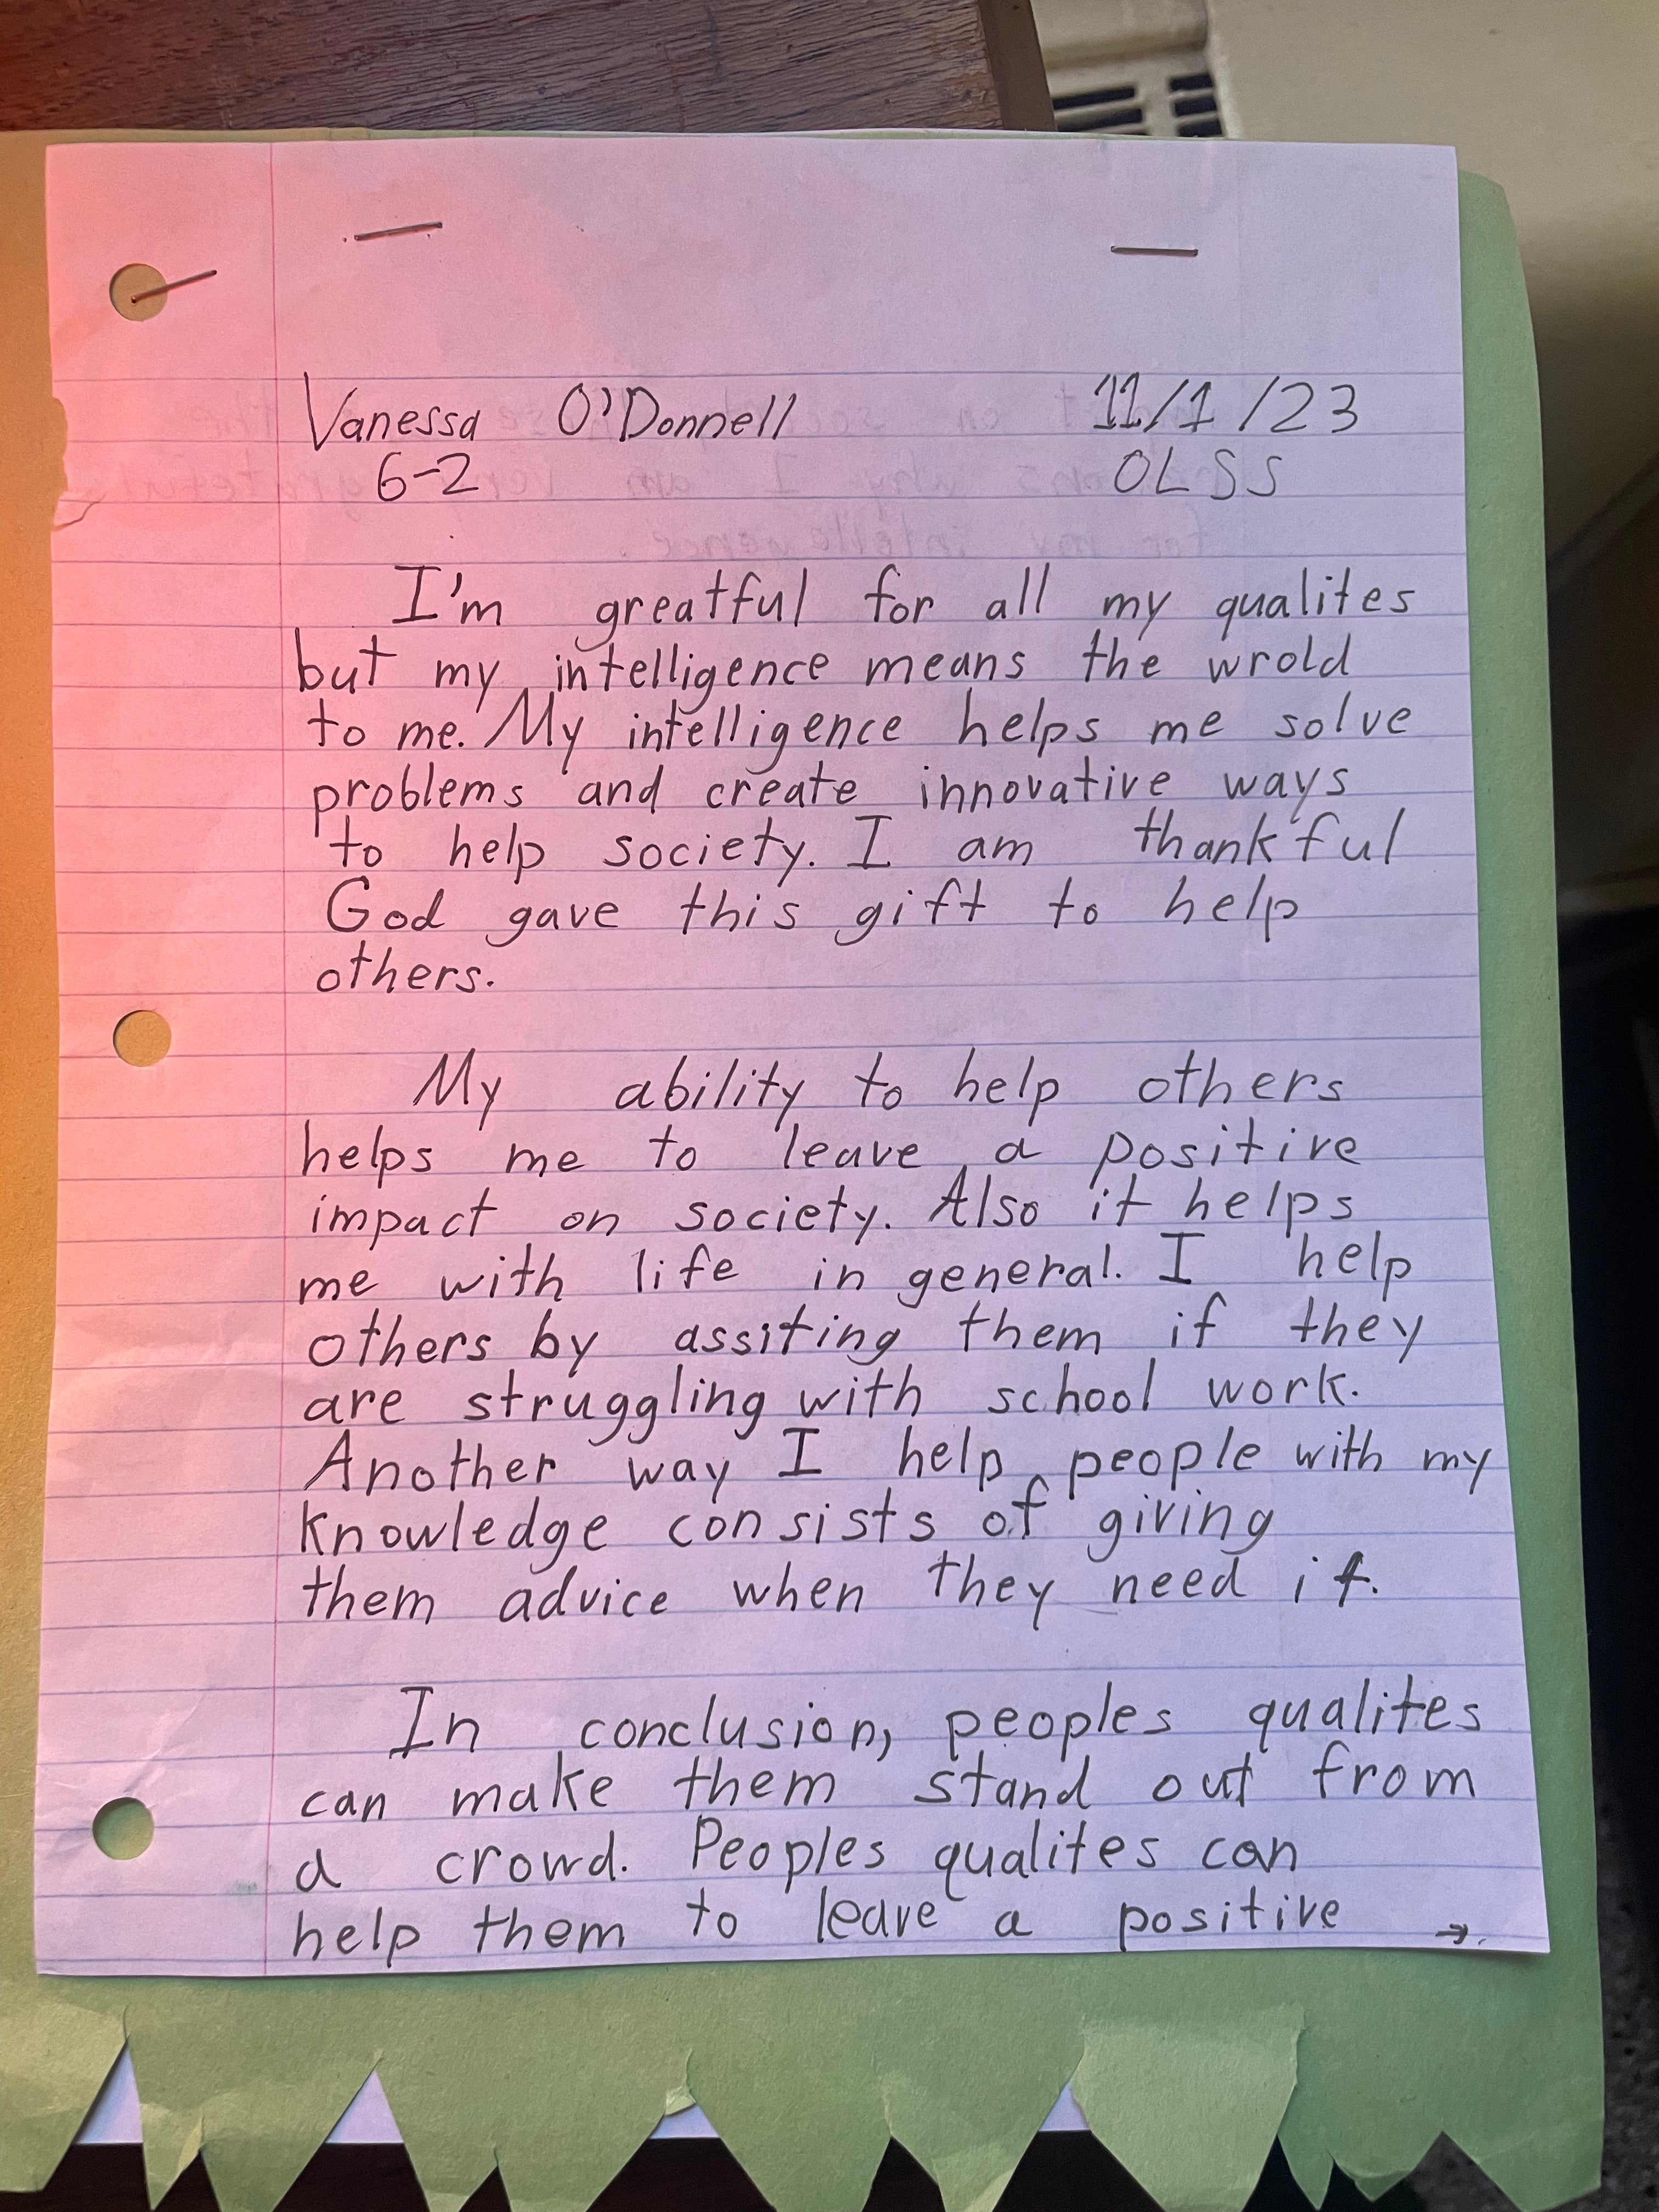 Vanessa O'Donnell 11/1/23
6-2 OLSS
I'm greatful for all my qualites
but my intelligence means the wrold
to me. My intelligence helps me solve
problems and create innovative ways
to help society. I am thankful
God gave this gift to help
others.
My ability to help others
helps me to leave a positive
impact on society. Also it helps
me with life in general. I help
others by assiting them if they
are struggling with school work.
Another way I help people with my
knowledge consists of giving
them advice when they need it.
In conclusion, peoples qualites
can make them stand out from
a crowd. Peoples qualites can
help them to leave a positive →